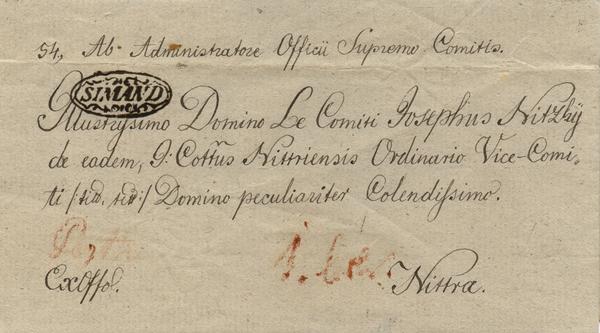 54, Ab Administratore Officii Supremo Comitis.
SIMAND
Illustrissimo Domino Le Comiti Josephus Nitzky
de eadem, I: Cottus Nittriensis Ordinario Vice-Comi-
ti /: tit. tit :/ Domino peculiariter Colendissimo.
ExOffo. Nittra.